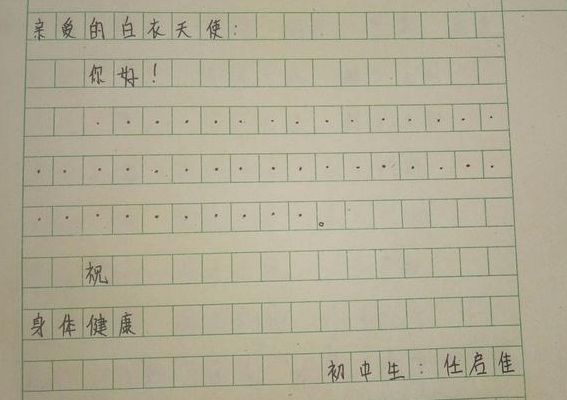 亲爱的白衣天使:
你好!
·············
·················
··········。
祝
身体健康
初中生:任启佳